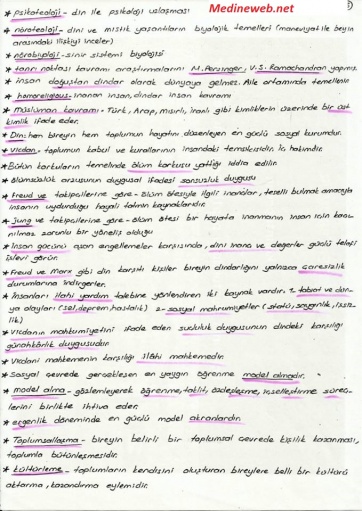 Medineweb.net
* psikoteoloji - din ile psikoloji uzlaşması
* nöroteoloji - dini ve mistik yaşantıların biyolojik temelleri (maneviyat ile beyin
arasındaki ilişkiyi inceler)
* nörobiyoloji - sinir sistemi biyolojisi
* tanrı noktası kavramı araştırmalarını M. Persinger, V.S. Ramachandran yapmış.
* insan doğuştan dindar olarak dünyaya gelmez. Aile ortamında temellenir
* homoreligious - inanan insan, dindar insan kavramı
* Müslüman kavramı - Türk, Arap, mısırlı, iranlı gibi kimliklerin üzerinde bir üst
kimlik ifade eder.
* Din: hem bireyin hem toplumun hayatını düzenleyen en güçlü sosyal kurumdur.
* Vicdan, toplumun kabul ve kurallarının insandaki temsilcisidir. İç hakimdir
* Bütün korkuların temelinde ölüm korkusu yattığı iddia edilir.
* ölümsüzlük arzusunun duygusal ifadesi sonsuzluk duygusu
* Freud ve takipçilerine göre - ölüm ötesiyle ilgili inançlar, teselli bulmak amacıyla
insanın uydurduğu hayali tatmin kaynaklarıdır.
* Jung ve takipçilerine göre - ölüm ötesi bir hayata inanmanın insan için kaçı-
nılmaz zorunlu bir yöneliş olduğu
* İnsan gücünü aşan engellemeler karşısında, dini inanç ve değerler güçlü telafi
işlevi görür.
* Freud ve Marx gibi din karşıtı kişiler bireyin dindarlığını yalnızca çaresizlik
durumlarına indirgerler.
* İnsanları ilahi yardım talebine yönlendiren iki kaynak vardır. 1- tabiat ve dün-
ya olayları (sel, deprem, hastalık) 2- sosyal mahrumiyetler (statü, saygınlık, işsiz-
lik)
* Vicdanın mahkumiyetini ifade eden suçluluk duygusunun dindeki karşılığı
günahkarlık duygusudur
* Vicdani mahkemenin karşılığı ilahi mahkemedir.
* Sosyal çevrede gerçekleşen en yaygın öğrenme model almadır.
* model alma - gözlemleyerek öğrenme, taklit, özdeşleşme, içselleştirme süreç-
lerini birlikte ihtiva eder.
* ergenlik döneminde en güçlü model akranlardır.
* Toplumsallaşma - bireyin belirli bir toplumsal çevrede kişilik kazanması,
toplumla bütünleşmesidir.
* kültürleme - toplumların kendisini oluşturan bireylere belli bir kültürü
aktarma, kazandırma eylemidir.